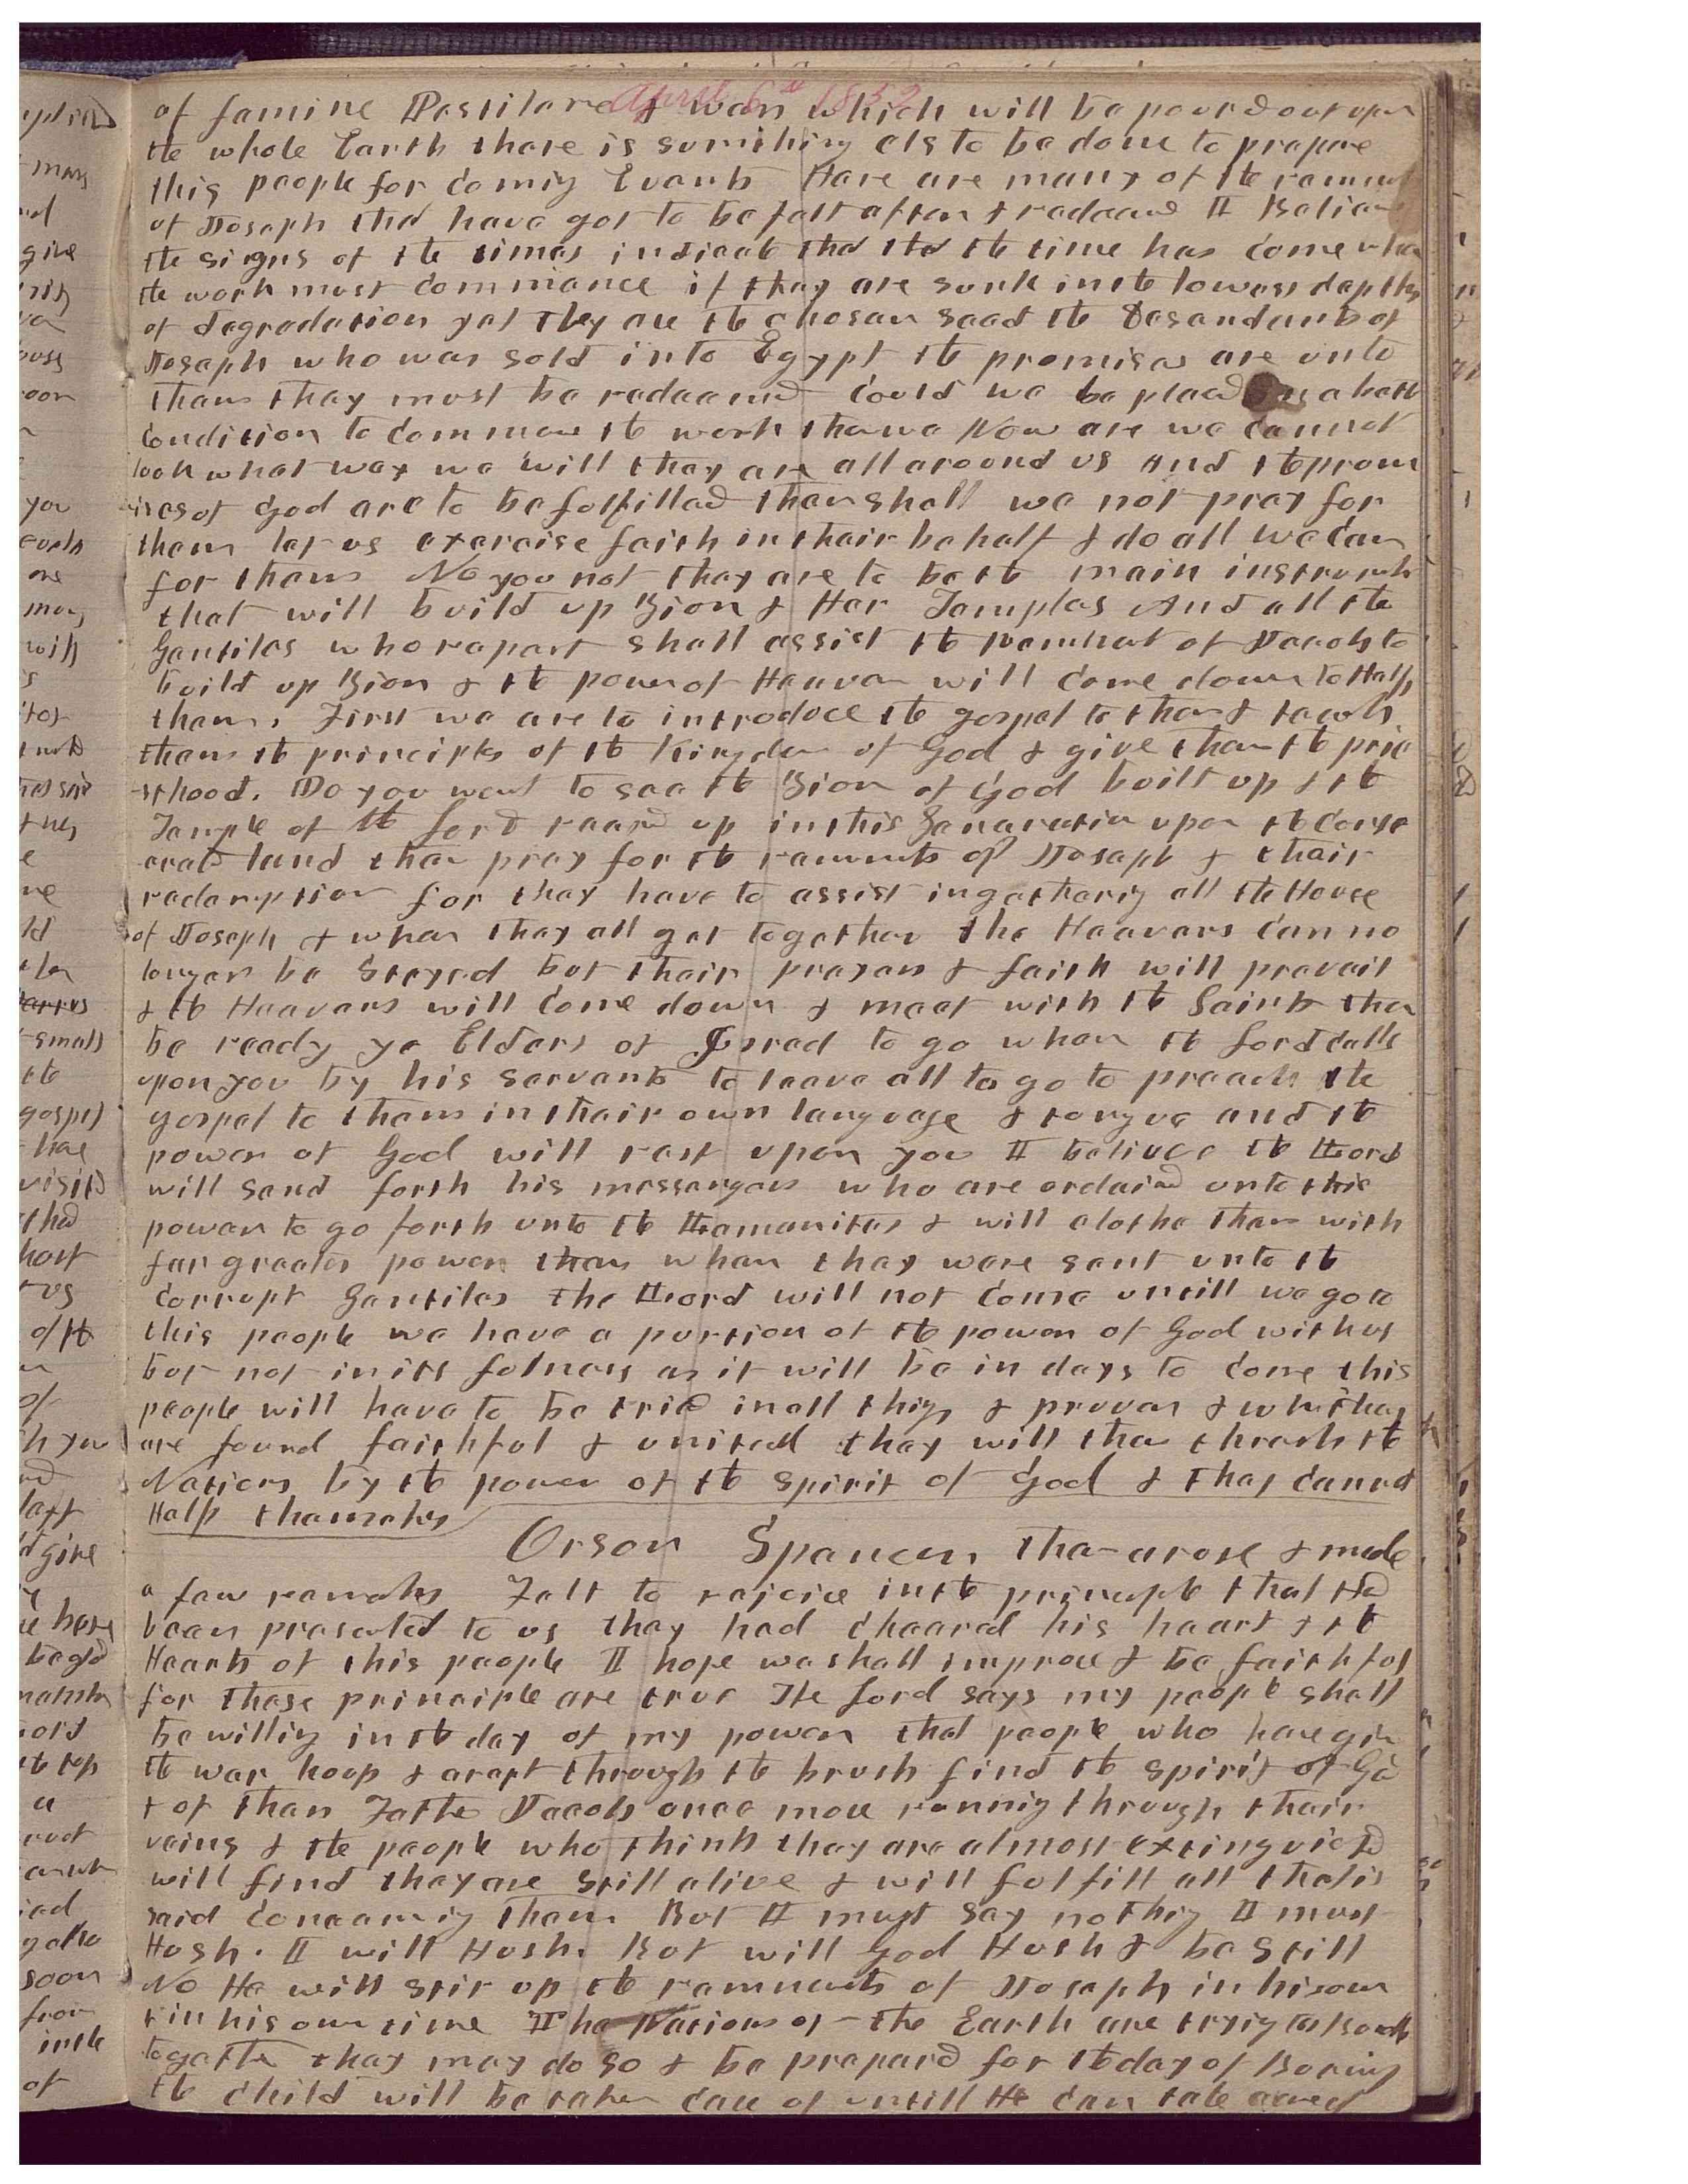 April 6th 1852
of famine Pestilance & war which will be pourd out upon
the whole Earth there is sumthing els to be done to prepare
this people for coming Events Here are many of the remnant
of Joseph that have got to be felt after & redeemed I Believe
the signs of the times indicate that the time has come when
the work must commence if they are sunk in the lowest depths
of degradation yet they are the chosen seed the Desendants of
Joseph who was sold into Egypt the promises are unto
them they must be redeemed could we be placed in a bett
condition to commence the work then we Now are we cannot
look what way we will they are all around us And the prom
ises of God are to be fulfilled then shall we not pray for
them let us exercise faith in their behalf & do all we can
for them No you not they are to be the main instruments
that will build up Zion & Her Temples And all the
Gentiles who repent shall assist the remnant of Jacob to
build up Zion & the power of Heaven will come down to Help
them. First we are to introduce the gospel to them & teach
them the principles of the Kingdom of God & give them the prie
-sthood. Do you want to see the Zion of God built up & the
Temple of the Lord reared up in this Generation upon the conse
crated land then pray for the remnants of Joseph & their
redemption for they have to assist in gathering all the House
of Joseph & when they all get together the Heavens can no
longer be Stayed but their prayers & faith will prevail
& the Heavens will come down & meet with the Saints then
be ready ye Elders of Israel to go when the Lord calls
upon you by his servants to leave all to go to preach the
gospel to them in their own language & tongue and the
power of God will rest upon you I believe the Lord
will send forth his messengers who are ordained unto this
power to go forth unto the Lamanites & will clothe them with
far greater power than when they were sent unto the
corrupt Gentiles the Lord will not come untill we go to
this people we have a portion of the power of God with us
but not in its fulness as it will be in days to come this
people will have to be tried in all things & proven & when they
are found faithful & united they will then thrash the
Nations by the power of the spirit of God & they cannot
Help themselves
Orson Spencer then arose & made
a few remarks Felt to rejoice in the principle that had
been presented to us they had cheared his heart & the
Hearts of this people I hope we shall improve & be faithful
for these principle are true The Lord says my people shall
be willing in the day of my power that people who have giv
the war hoop & crept through the brush find the spirit of God
& of then Father Jacob once more running through their
veins & the people who think they are almost extinguished
will find they are still alive & will fulfill all that is
said concerning them But I must say nothing I must
Hush. I will Hush. But will God Hush & be still
No He will stir up the remnants of Joseph in his own
& in his own time The Nations of the Earth are trying to
together they may do so & be prepared for the day of Burning
the child will be taken care of untill He can take care of